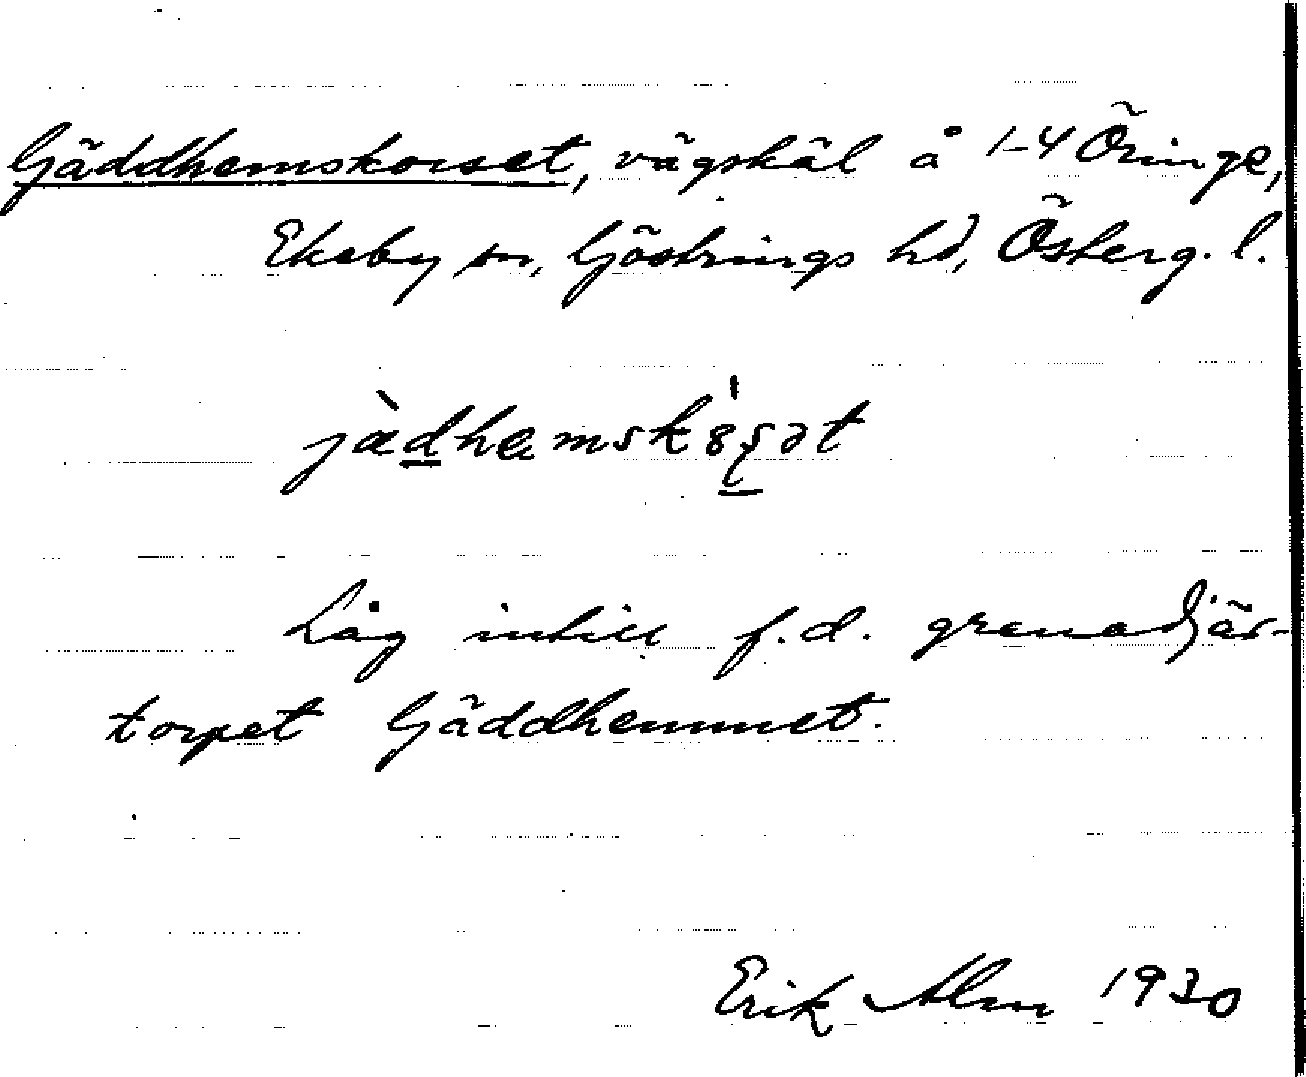 Gäddhemskorset, vägskäl å 1-4 Öringe,
Ekeby sn, Göstrings hd, Österg. l.
Låg intill f.d. grenadjär-
torpet Gäddhemmet.
Erik Alm 1930